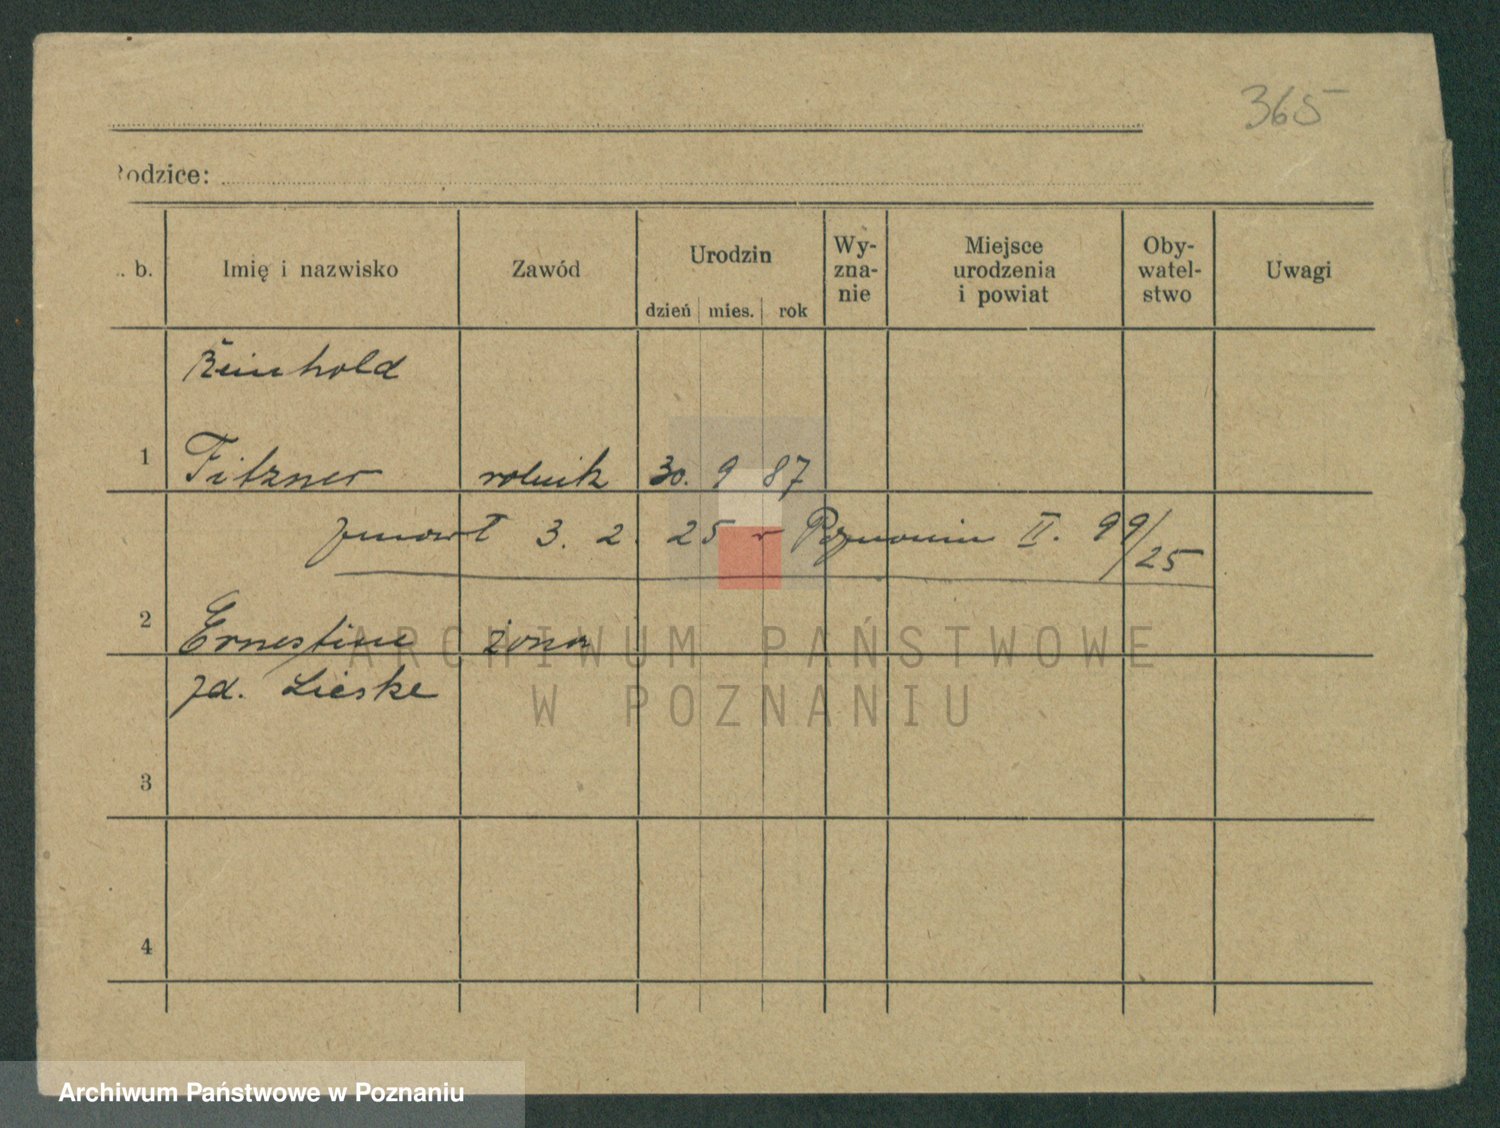 365
Rodzice:
. b.
Imię i nazwisko
Zawód
Urodzin
dzień mies. rok
Wy-
zna-
nie
Miejsce
urodzenia
i powiat
Oby-
watel-
stwo
Uwagi
Reinhold
1 Fitzner rolnik 30. 9 87
zmarł 3. 2. 25 w Poznaniu II. 99/25
2 Ernestine żona
zd. Lieske
3
4
ARCHIWUM PAŃSTWOWE
W POZNANIU
Archiwum Państwowe w Poznaniu